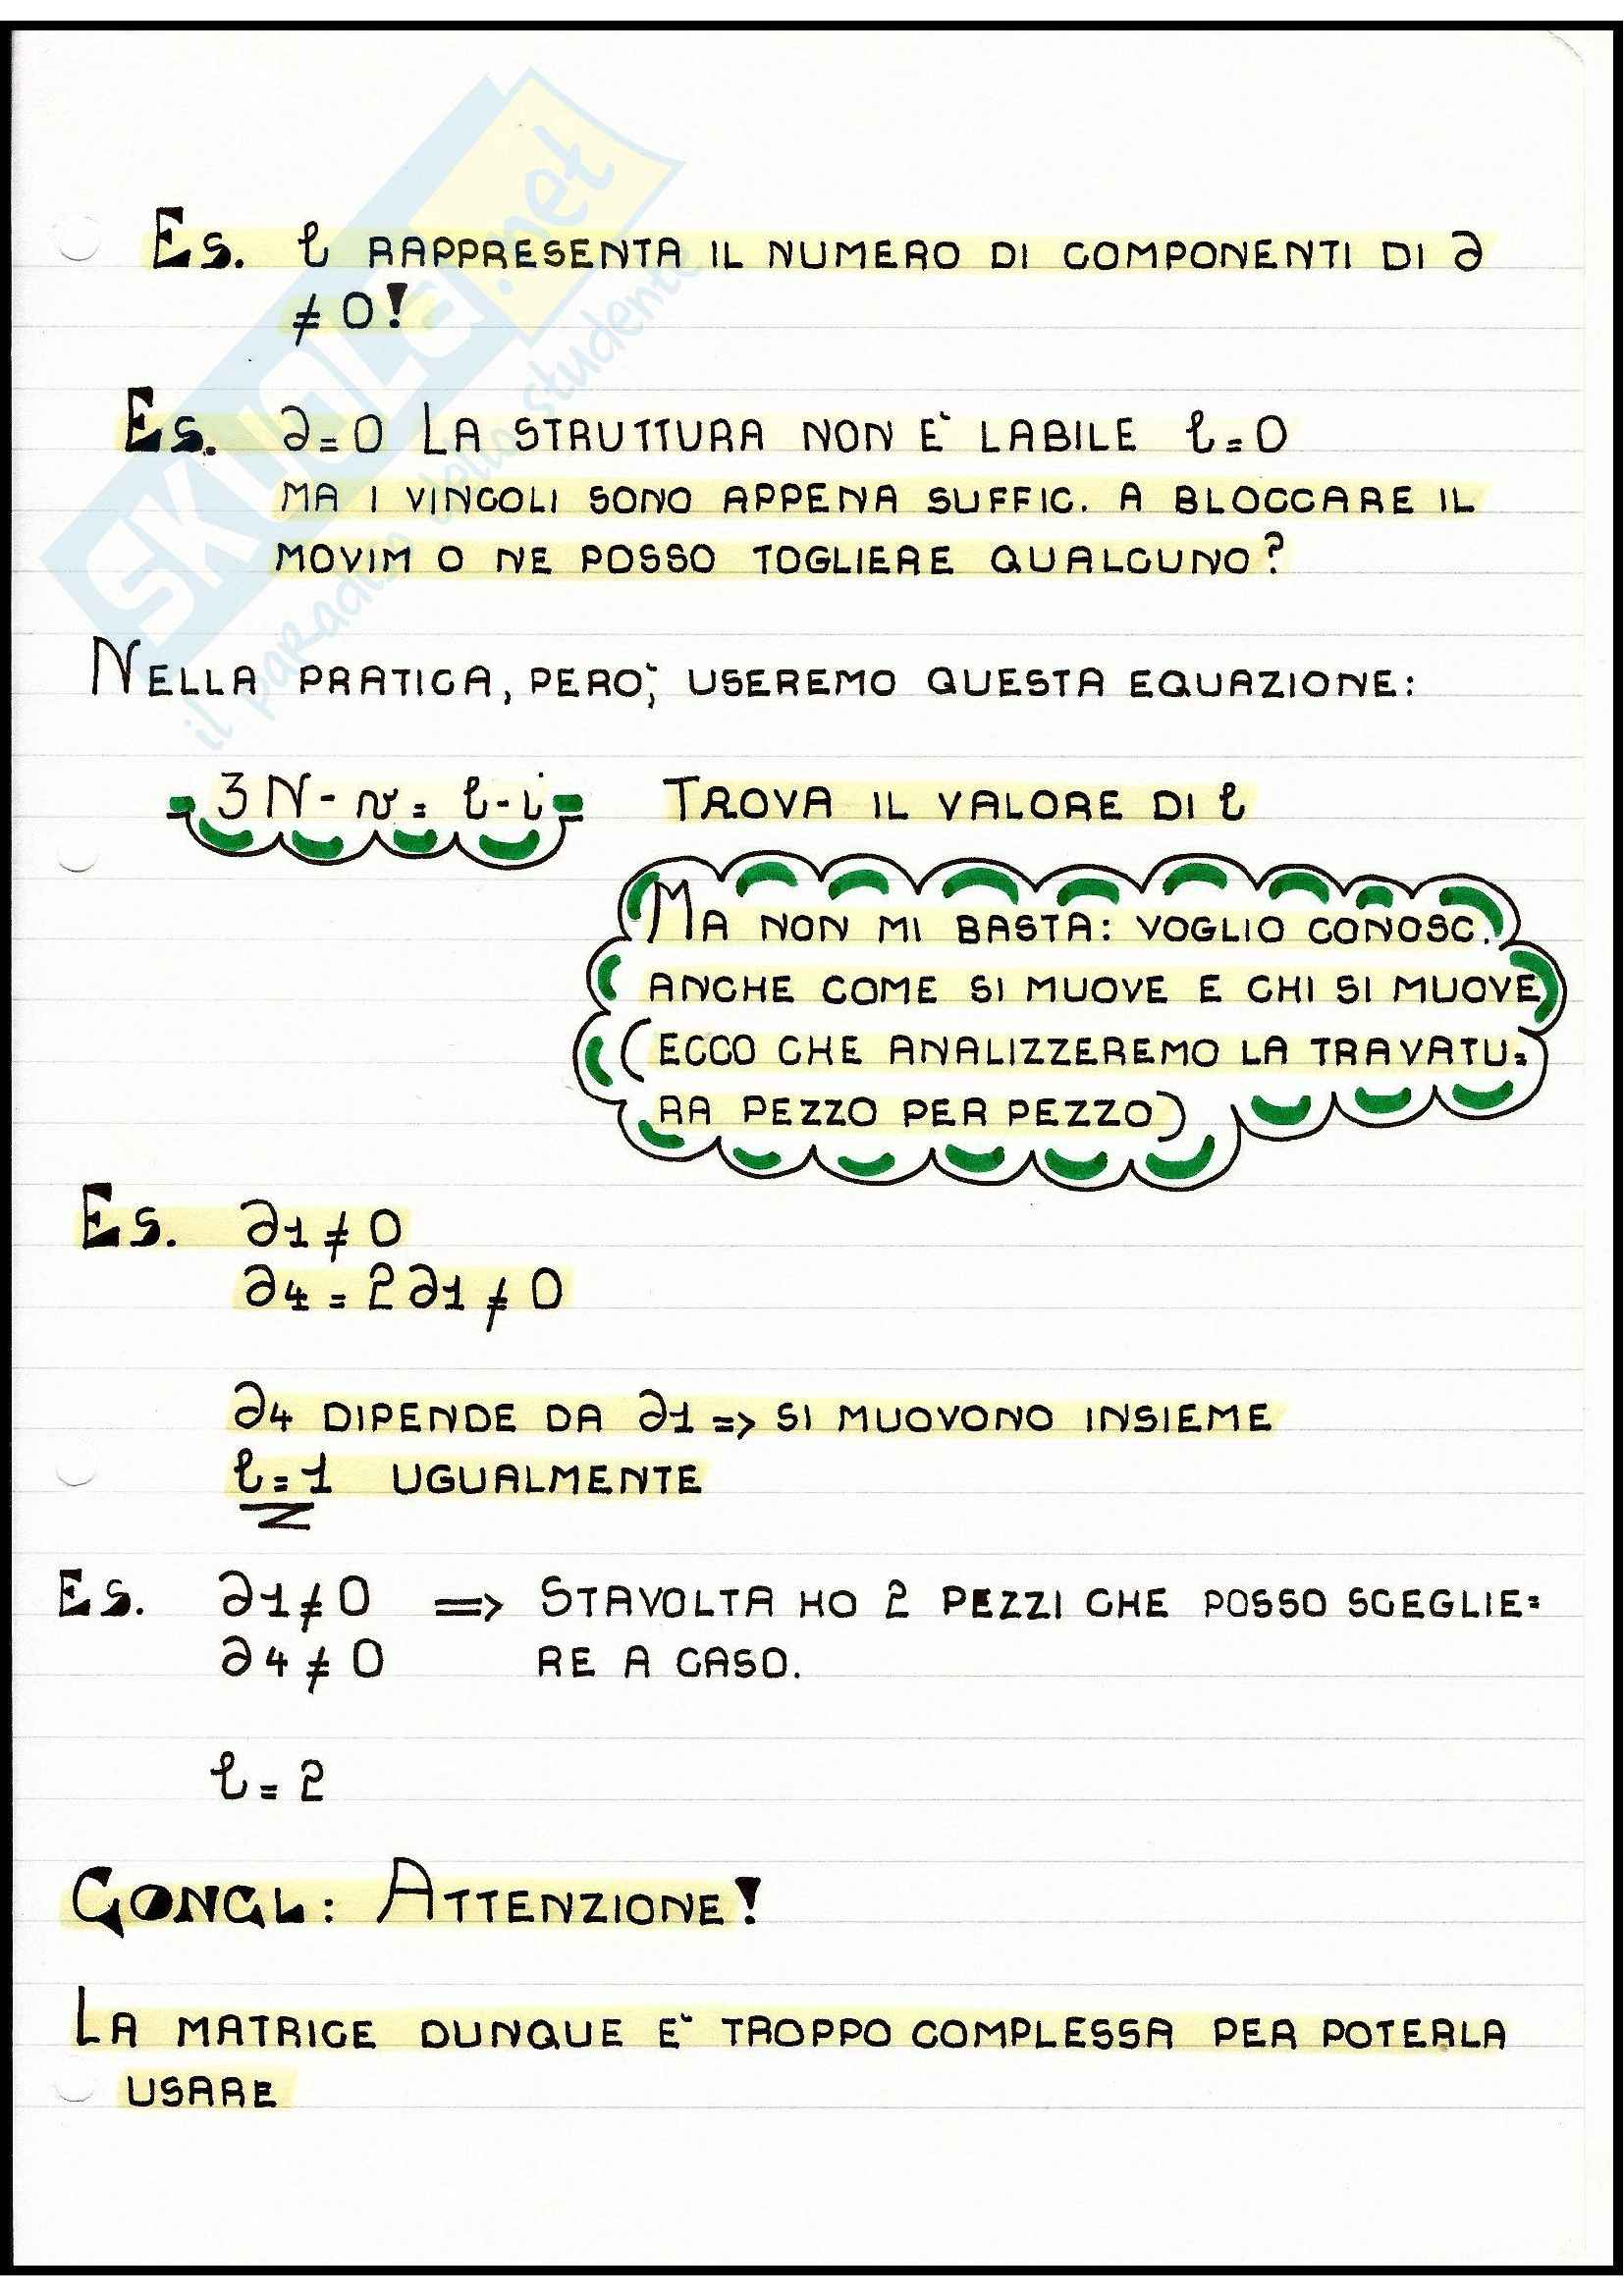 Es. ℓ RAPPRESENTA IL NUMERO DI COMPONENTI DI ∂
≠ 0!
Es. ∂=0 LA STRUTTURA NON E' LABILE ℓ=0
MA I VINCOLI SONO APPENA SUFFIC. A BLOCCARE IL
MOVIM O NE POSSO TOGLIERE QUALCUNO?
NELLA PRATICA, PERO', USEREMO QUESTA EQUAZIONE:
3N - v = ℓ - i TROVA IL VALORE DI ℓ
MA NON MI BASTA: VOGLIO CONOSC.
ANCHE COME SI MUOVE E CHI SI MUOVE
(ECCO CHE ANALIZZEREMO LA TRAVATU=
RA PEZZO PER PEZZO)
Es. ∂1 ≠ 0
∂4 = 2∂1 ≠ 0
∂4 DIPENDE DA ∂1 => SI MUOVONO INSIEME
ℓ=1 UGUALMENTE
Es. ∂1 ≠ 0 => STAVOLTA HO 2 PEZZI CHE POSSO SCEGLIE=
∂4 ≠ 0 RE A CASO.
ℓ = 2
CONCL: ATTENZIONE!
LA MATRICE DUNQUE E' TROPPO COMPLESSA PER POTERLA
USARE
SKUOLA.net
il paradiso dello studente